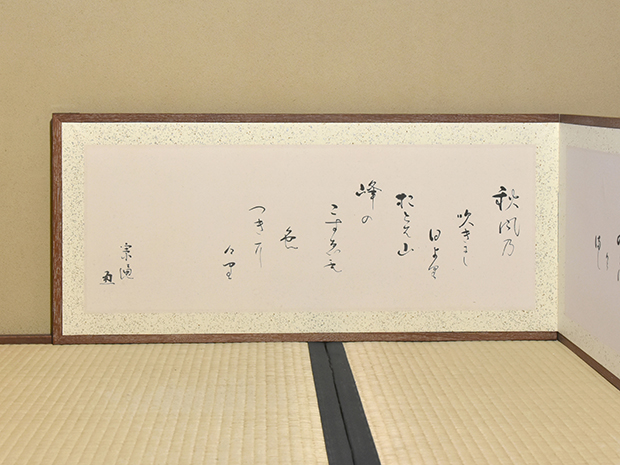 秋風乃
吹きにし
日より
おとは山
峰の
こすゑも
色
つきに
けり